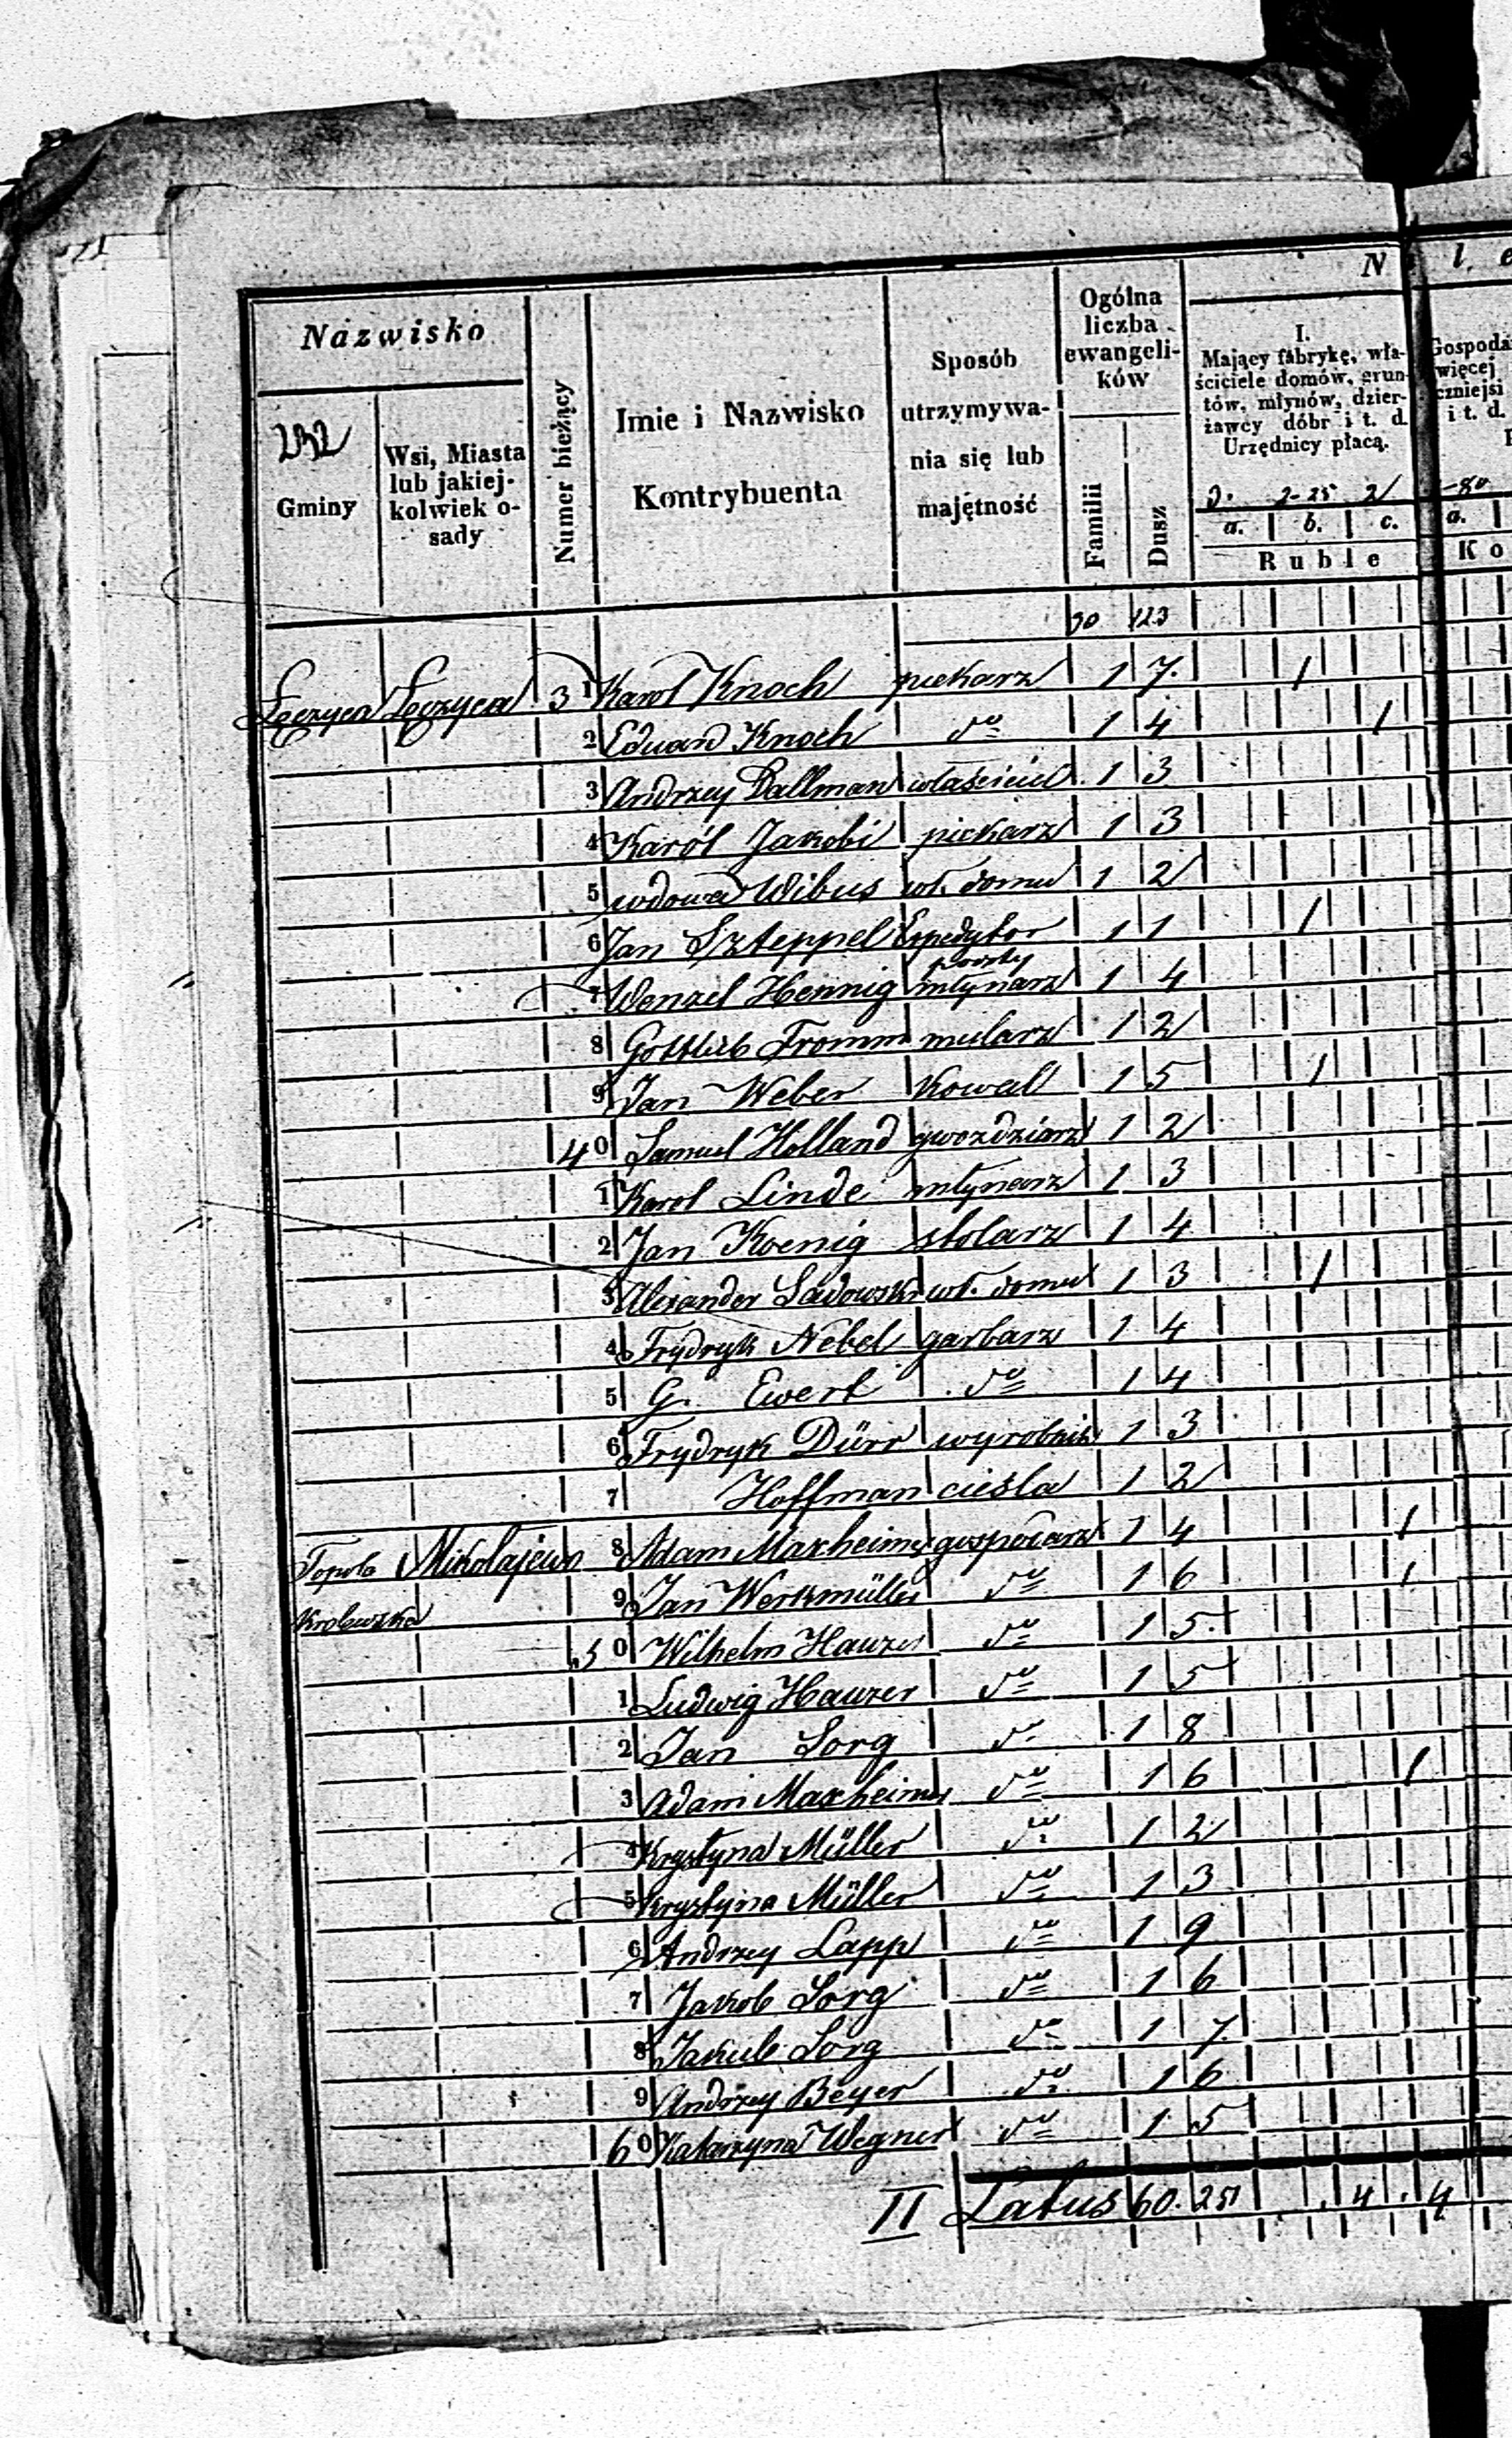 N l e
Nazwisko
232
Gminy
Wsi, Miasta lub jakiej-kolwiek o-sady
Numer bieżący
Imie i Nazwisko Kontrybuenta
Sposób utrzymywa-nia się lub majętność
Ogólna liczba ewangeli-ków
Familii
Dusz
I.
Mający fabrykę, wła-
ściciele domów, grun-
tów, młynów, dzier-
żawcy dóbr i t. d.
Urzędnicy płacą.
3. 2-25 2
a. b. c.
Ruble
Gospoda
więcej
czniejsi
i t. d.
-80
a.
Ko
30 123
Łęczyca Łęczyca 31 Karol Knoch piekarz 1 7. 1
2 Eduard Knoch do 1 4 1
3 Andrzey Dallman właściciel 1 3
4 Karól Jakobi piekarz 1 3
5 wdowa Wibus wł. domu 1 2
6 Jan Szteppel Expedytor poczty 1 1 1
7 Wenzel Hennig młynarz 1 4
8 Gottlieb Fromm mularz 1 2
9 Jan Weber Kowal 1 5 1
40 Samuel Holland gwozdziarz 1 2
1 Karol Linde młynarz 1 3
2 Jan Koenig stolarz 1 4
3 Alexander Sadowski wł. domu 1 3 1
4 Frydryk Nebel garbarz 1 4
5 G. Ewert do 1 4
6 Frydryk Dürr wyrobnik 1 3
7 Hoffman ciesla 1 2
Topola Mikołajewo 8 Adam Maxheimer gospodarz 1 4 1
Krolewska 9 Jan Wertzmüller do 1 6 1
50 Wilhelm Hauzer do 1 5.
1 Ludwig Hauzer do 1 5
2 Jan Sorg do 1 8
3 Adam Maxheimer do 1 6 1
4 Krystyna Müller do 1 2
5 Krystyna Müller do 1 3
6 Andrzey Lapp do 1 9
7 Jakob Sorg do 1 6
8 Jakub Sorg do 1 7
9 Andrzey Beyer do 1 6
60 Katarzyna Wegner do 1 5
II Latus 60. 251 4. 4